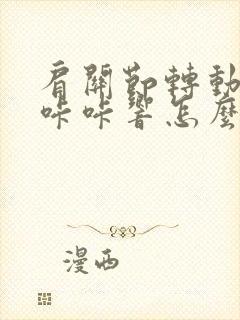 肩關節轉動
咔咔響怎麼
漫西